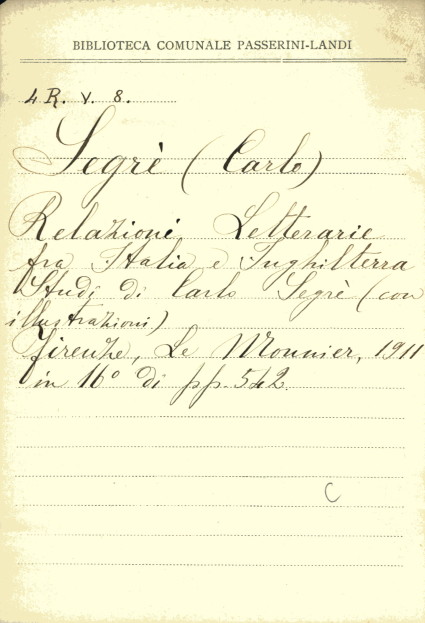 BIBLIOTECA COMUNALE PASSERINI-LANDI
4 R. V. 8.
Segrè (Carlo)
Relazioni Letterarie
fra Italia e Inghilterra
Studi di Carlo Segrè (con
illustrazioni)
Firenze, Le Monnier, 1911
in 16° di pp. 542.
C